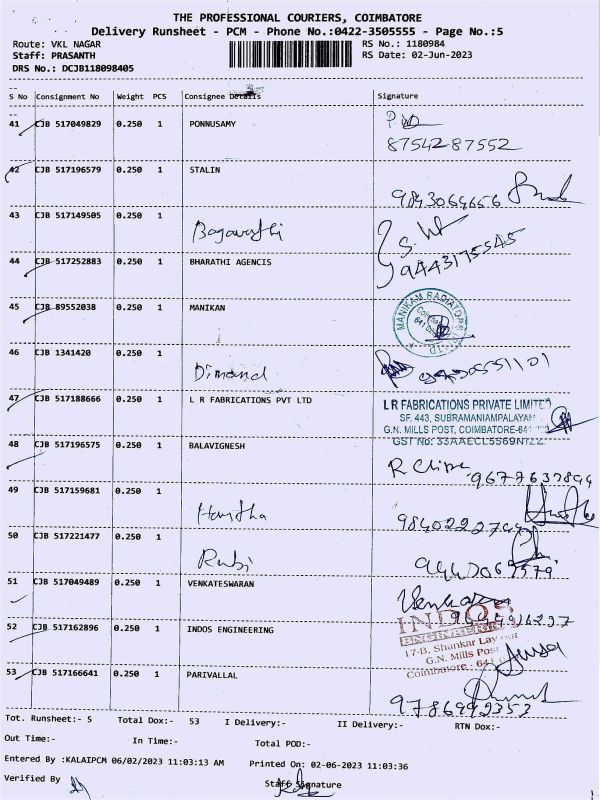 THE PROFESSIONAL COURIERS, COIMBATORE
Delivery Runsheet - PCM - Phone No.:0422-3505555 - Page No.:5
Route: VKL NAGAR RS No.: 1180984
Staff: PRASANTH RS Date: 02-Jun-2023
DRS No.: DCJB118098405
S No Consignment No Weight PCS Consignee Details Signature
41 CJB 517049829 0.250 1 PONNUSAMY
87542 87552
42 CJB 517196579 0.250 1 STALIN
9843064656
43 CJB 517149505 0.250 1 Bagavathi
44 CJB 517252883 0.250 1 BHARATHI AGENCIS 9443175545
45 CJB 89552038 0.250 1 MANIKAN MANIKAM RADIATORS
46 CJB 1341420 0.250 1 Dimand
47 CJB 517188666 0.250 1 L R FABRICATIONS PVT LTD L R FABRICATIONS PRIVATE LIMITED
SF. 443, SUBRAMANIAMPALAYAM
G.N. MILLS POST, COIMBATORE-641
GST No: 33AAECL5569N1ZZ
48 CJB 517196575 0.250 1 BALAVIGNESH
9677637894
49 CJB 517159681 0.250 1 Haritha
50 CJB 517221477 0.250 1 Rubi
51 CJB 517049489 0.250 1 VENKATESWARAN
52 CJB 517162896 0.250 1 INDOS ENGINEERING INDOS
17-B, Shankar Layout
G.N. Mills Post
Coimbatore - 641
53 CJB 517166641 0.250 1 PARIVALLAL
9786992353
Tot. Runsheet:- 5 Total Dox:- 53 I Delivery:- II Delivery:- RTN Dox:-
Out Time:- In Time:- Total POD:-
Entered By :KALAIPCM 06/02/2023 11:03:13 AM Printed On: 02-06-2023 11:03:36
Verified By Staff Signature